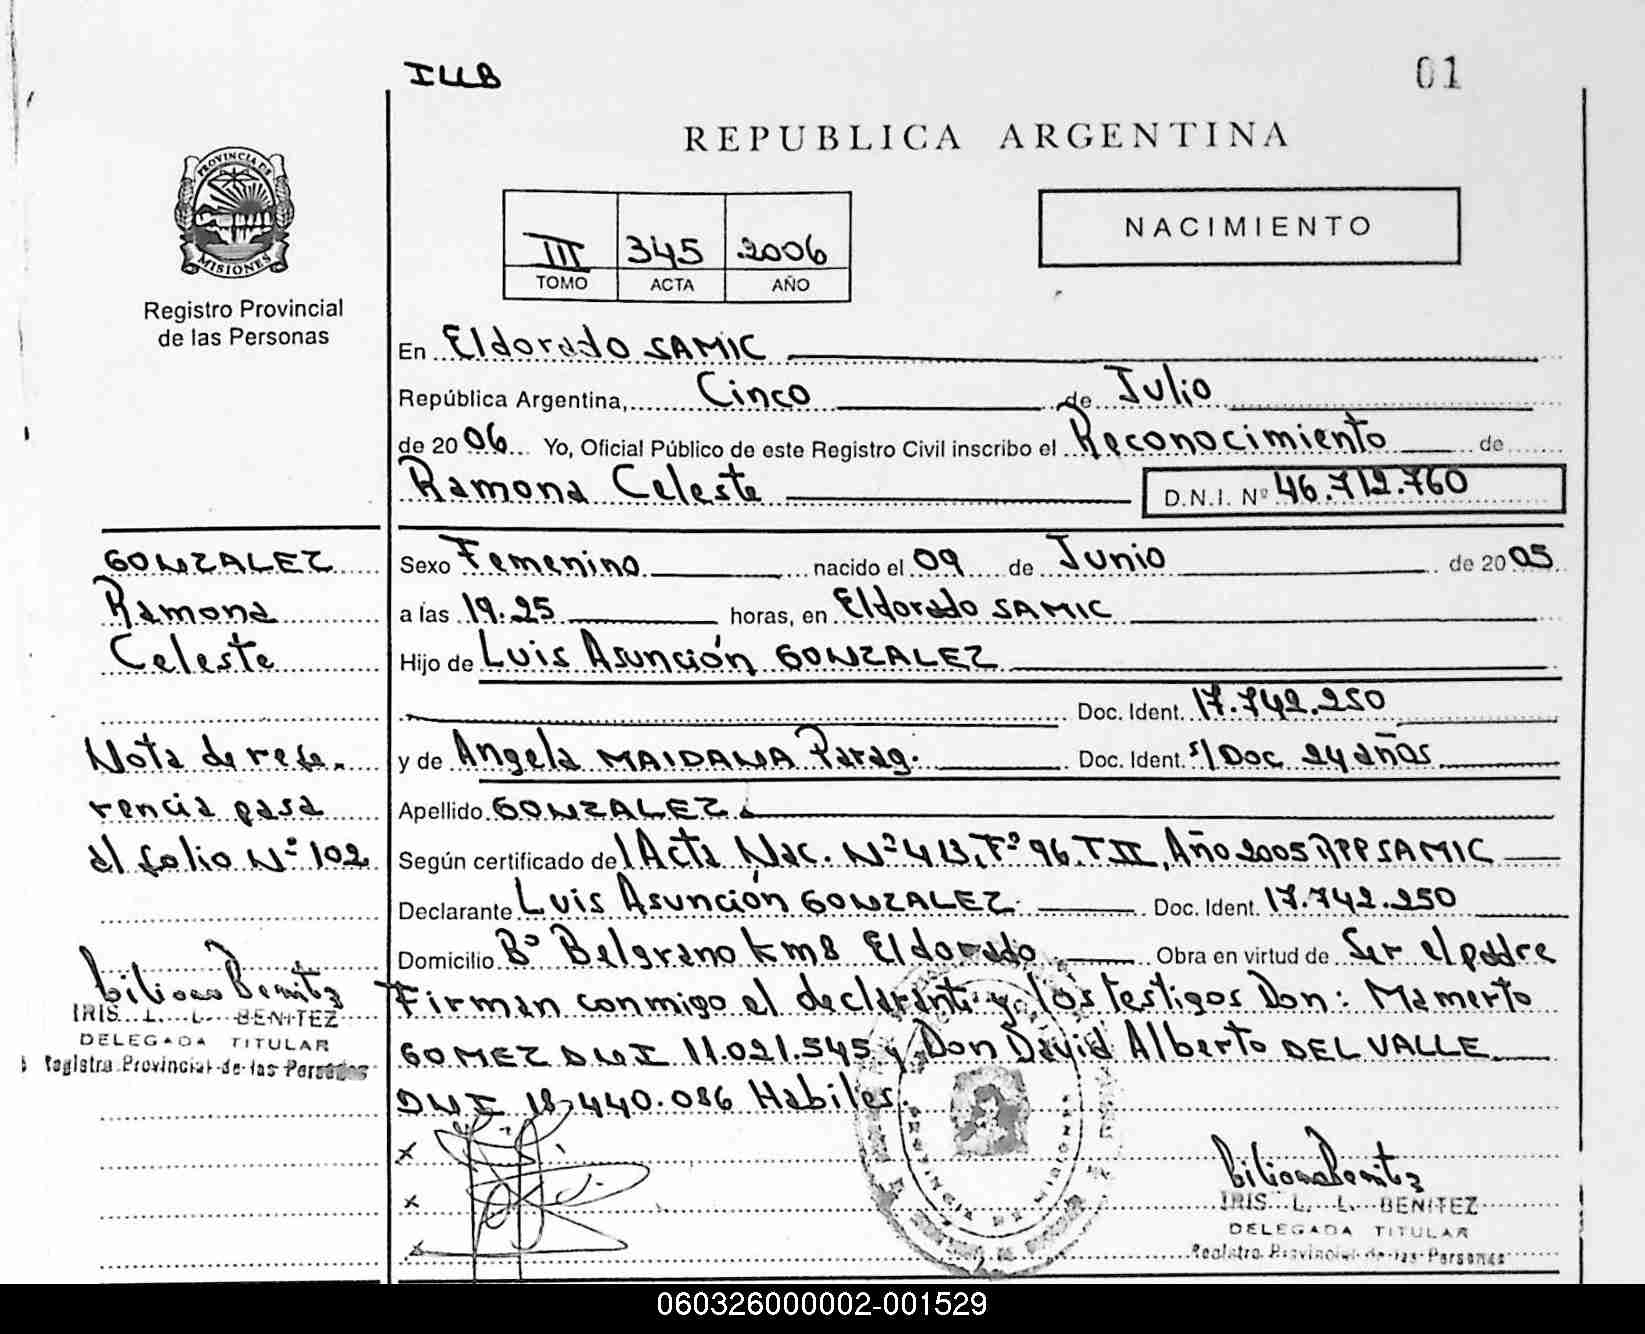 ILLB
01
REPUBLICA ARGENTINA
PROVINCIA DE
MISIONES
NACIMIENTO
III 345 2006
TOMO ACTA AÑO
Registro Provincial
de las Personas
En Eldorado SAMIC
República Argentina, Cinco de Julio
de 2006 Yo, Oficial Público de este Registro Civil inscribo el Reconocimiento de
Ramona Celeste D.N.I. Nº 46.712.760
GONZALEZ
Ramona
Celeste
Sexo Femenino nacido el 09 de Junio de 2005
a las 19.25 horas, en Eldorado SAMIC
Hijo de Luis Asunción GONZALEZ
Doc. Ident. 17.742.250
y de Angela MAIDANA Parag. Doc. Ident. s/Doc 24 años
Nota de refe.
rencia pasa
al folio Nº 102
Apellido GONZALEZ
Según certificado de l Acta Nac. Nº 413, Fº 96 T II, Año 2005 RPP SAMIC
Declarante Luis Asunción GONZALEZ Doc. Ident. 17.742.250
Domicilio Bº Belgrano km 8 Eldorado Obra en virtud de Ser el padre
Firman conmigo el declarante y los testigos Don: Mamerto
GOMEZ DNI 11.021.545 y Don David Alberto DEL VALLE
DNI 18.440.086 Habiles.
IRIS L. L. BENITEZ
DELEGADA TITULAR
Registro Provincial de las Personas
x
x
x
IRIS L. L. BENITEZ
DELEGADA TITULAR
Registro Provincial de las Personas
060326000002-001529